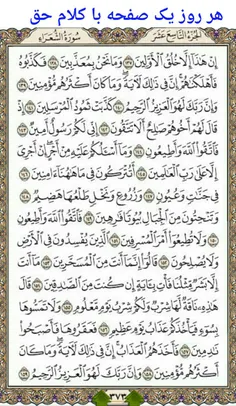 هر روز یک صفحه با کلام حق
الجزء التاسع عشر سورة الشعراء
إِنْ هَٰذَا إِلَّا خُلُقُ الْأَوَّلِينَ ١٣٧ وَمَا نَحْنُ بِمُعَذَّبِينَ ١٣٨ فَكَذَّبُوهُ
فَأَهْلَكْنَاهُمْ إِنَّ فِي ذَٰلِكَ لَآيَةً وَمَا كَانَ أَكْثَرُهُم مُّؤْمِنِينَ ١٣٩
وَإِنَّ رَبَّكَ لَهُوَ الْعَزِيزُ الرَّحِيمُ ١٤٠ كَذَّبَتْ ثَمُودُ الْمُرْسَلِينَ ١٤١
إِذْ قَالَ لَهُمْ أَخُوهُمْ صَالِحٌ أَلَا تَتَّقُونَ ١٤٢ إِنِّي لَكُمْ رَسُولٌ أَمِينٌ ١٤٣
فَاتَّقُوا اللَّهَ وَأَطِيعُونِ ١٤٤ وَمَا أَسْأَلُكُمْ عَلَيْهِ مِنْ أَجْرٍ إِنْ أَجْرِيَ
إِلَّا عَلَىٰ رَبِّ الْعَالَمِينَ ١٤٥ أَتُتْرَكُونَ فِي مَا هَاهُنَا آمِنِينَ ١٤٦
فِي جَنَّاتٍ وَعُيُونٍ ١٤٧ وَزُرُوعٍ وَنَخْلٍ طَلْعُهَا هَضِيمٌ ١٤٨
وَتَنْحِتُونَ مِنَ الْجِبَالِ بُيُوتًا فَارِهِينَ ١٤٩ فَاتَّقُوا اللَّهَ وَأَطِيعُونِ
١٥٠ وَلَا تُطِيعُوا أَمْرَ الْمُسْرِفِينَ ١٥١ الَّذِينَ يُفْسِدُونَ فِي الْأَرْضِ
وَلَا يُصْلِحُونَ ١٥٢ قَالُوا إِنَّمَا أَنتَ مِنَ الْمُسَحَّرِينَ ١٥٣ مَا أَنتَ
إِلَّا بَشَرٌ مِّثْلُنَا فَأْتِ بِآيَةٍ إِن كُنتَ مِنَ الصَّادِقِينَ ١٥٤ قَالَ
هَٰذِهِ نَاقَةٌ لَّهَا شِرْبٌ وَلَكُمْ شِرْبُ يَوْمٍ مَّعْلُومٍ ١٥٥ وَلَا تَمَسُّوهَا
بِسُوءٍ فَيَأْخُذَكُمْ عَذَابُ يَوْمٍ عَظِيمٍ ١٥٦ فَعَقَرُوهَا فَأَصْبَحُوا
نَادِمِينَ ١٥٧ فَأَخَذَهُمُ الْعَذَابُ إِنَّ فِي ذَٰلِكَ لَآيَةً وَمَا كَانَ
أَكْثَرُهُم مُّؤْمِنِينَ ١٥٨ وَإِنَّ رَبَّكَ لَهُوَ الْعَزِيزُ الرَّحِيمُ ١٥٩
٣٧٣